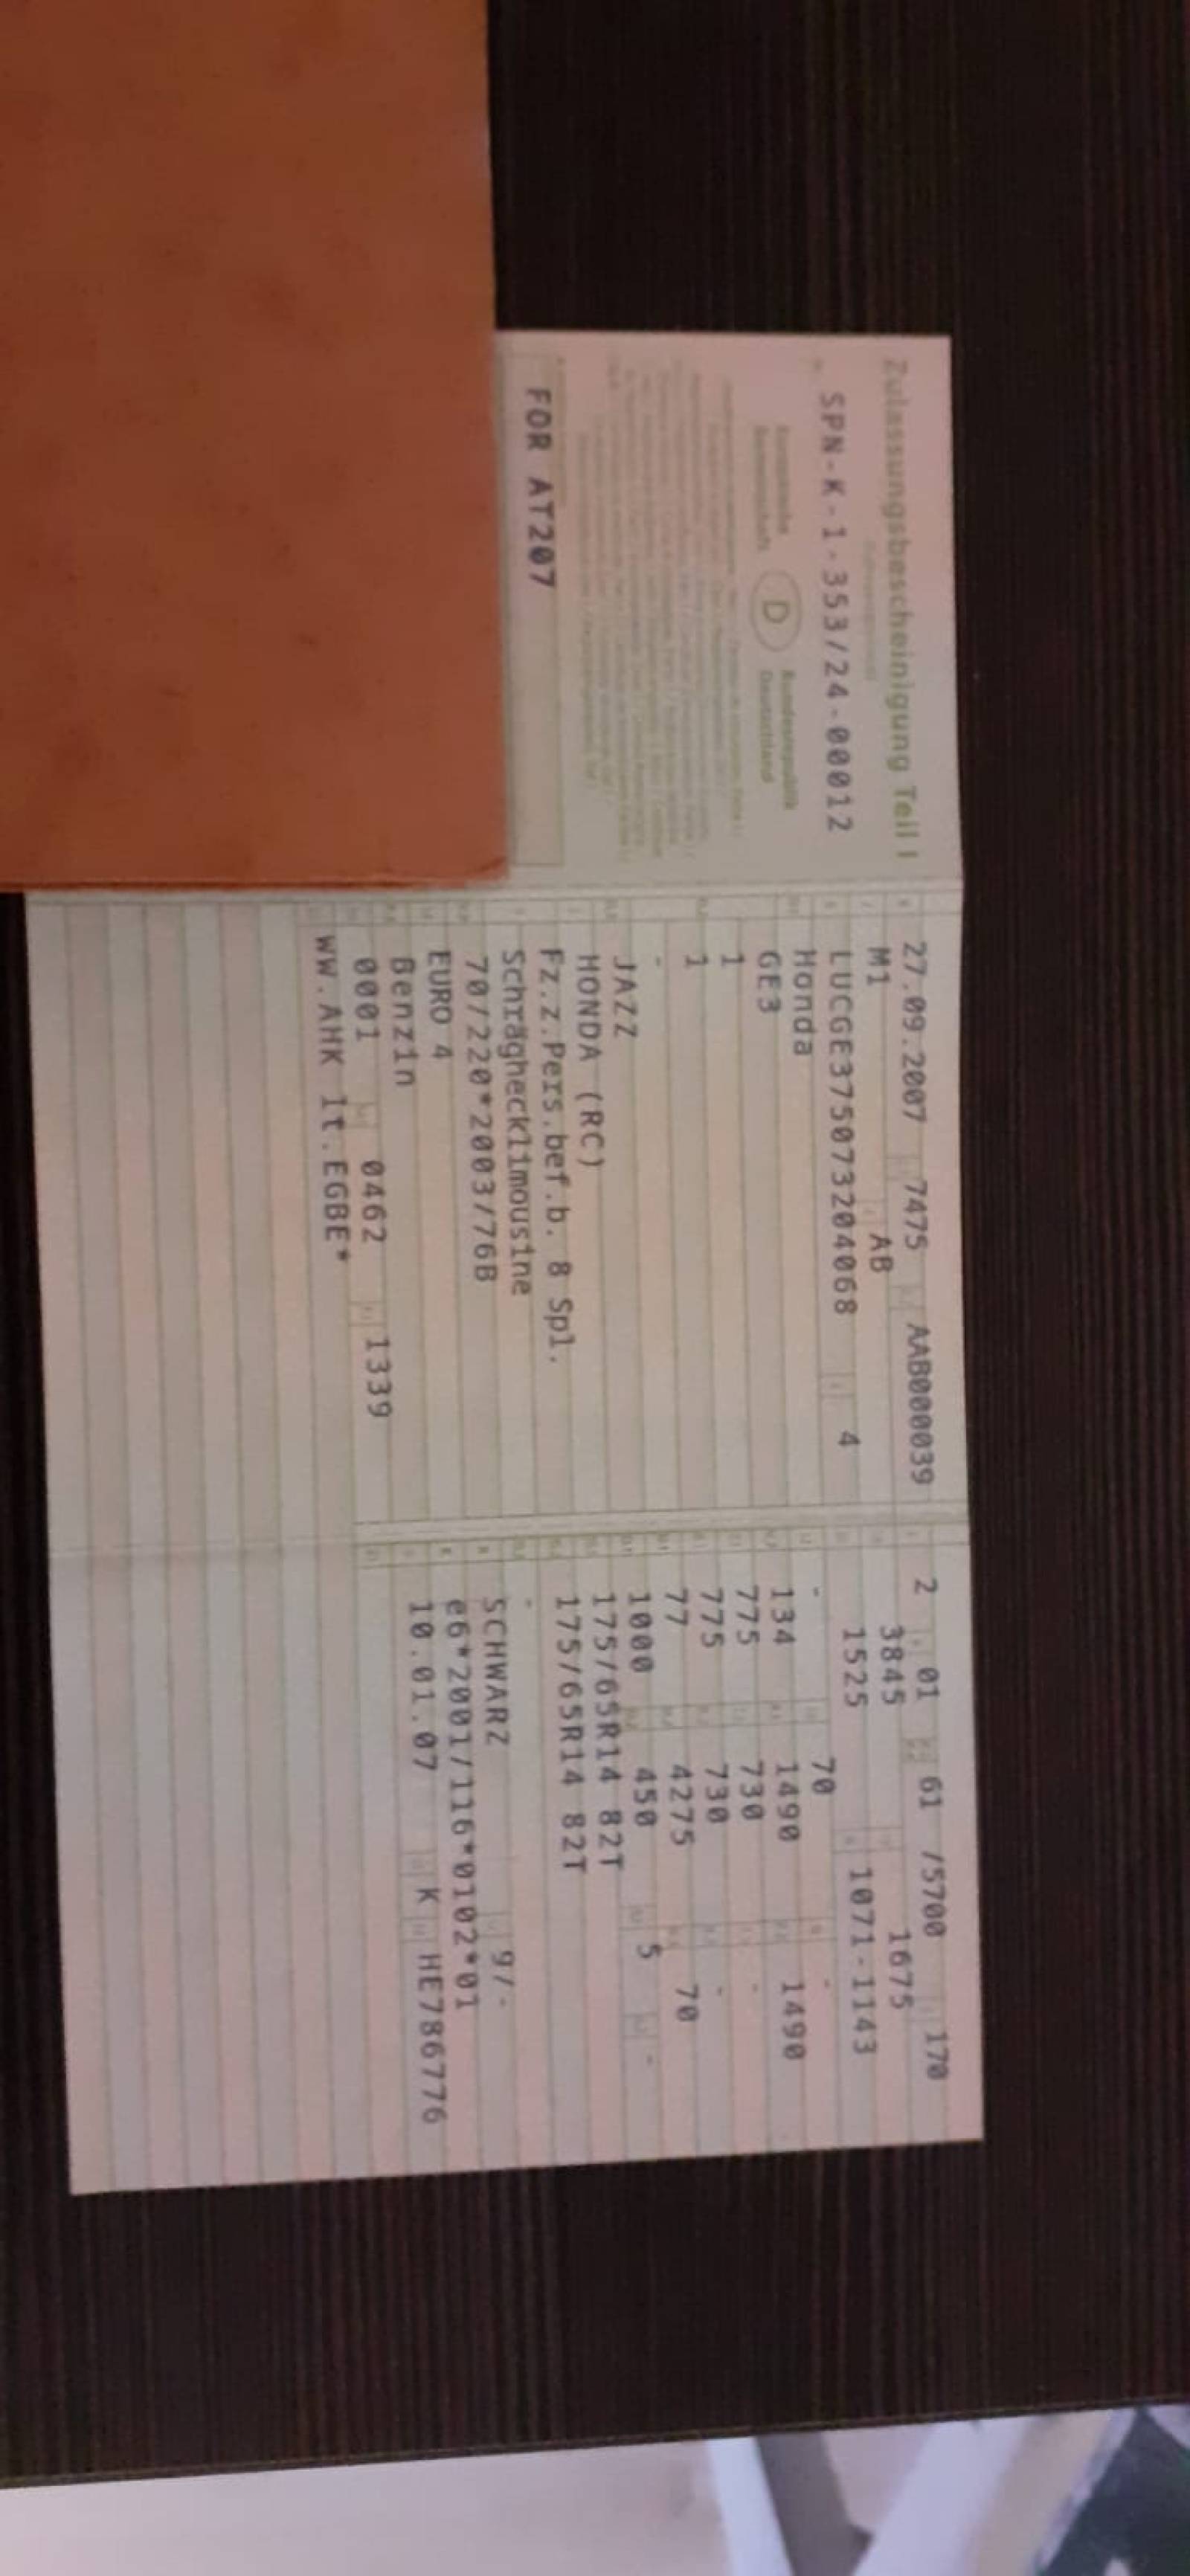 Zulassungsbescheinigung Teil I
SPN-K-1-353/24-00012
Europäische Gemeinschaft
D
Bundesrepublik Deutschland
FOR AT207
27.09.2007 7475 AAB000039
M1 AB
LUCGE375073204068 4
Honda
GE3
1
1
-
JAZZ
HONDA (RC)
Fz.z.Pers.bef.b. 8 Spl.
Schräghecklimousine
70/220*2003/76B
EURO 4
Benzin
0001 0462 1339
WW.AHK lt.EGBE*
2 01 61 /5700 170
3845 1675
1525 1071-1143
- 70 -
134 1490 1490
775 730 -
775 730 -
77 4275 70
1000 450 5 -
175/65R14 82T
175/65R14 82T
-
SCHWARZ 9/-
e6*2001/116*0102*01
10.01.07 K HE786776